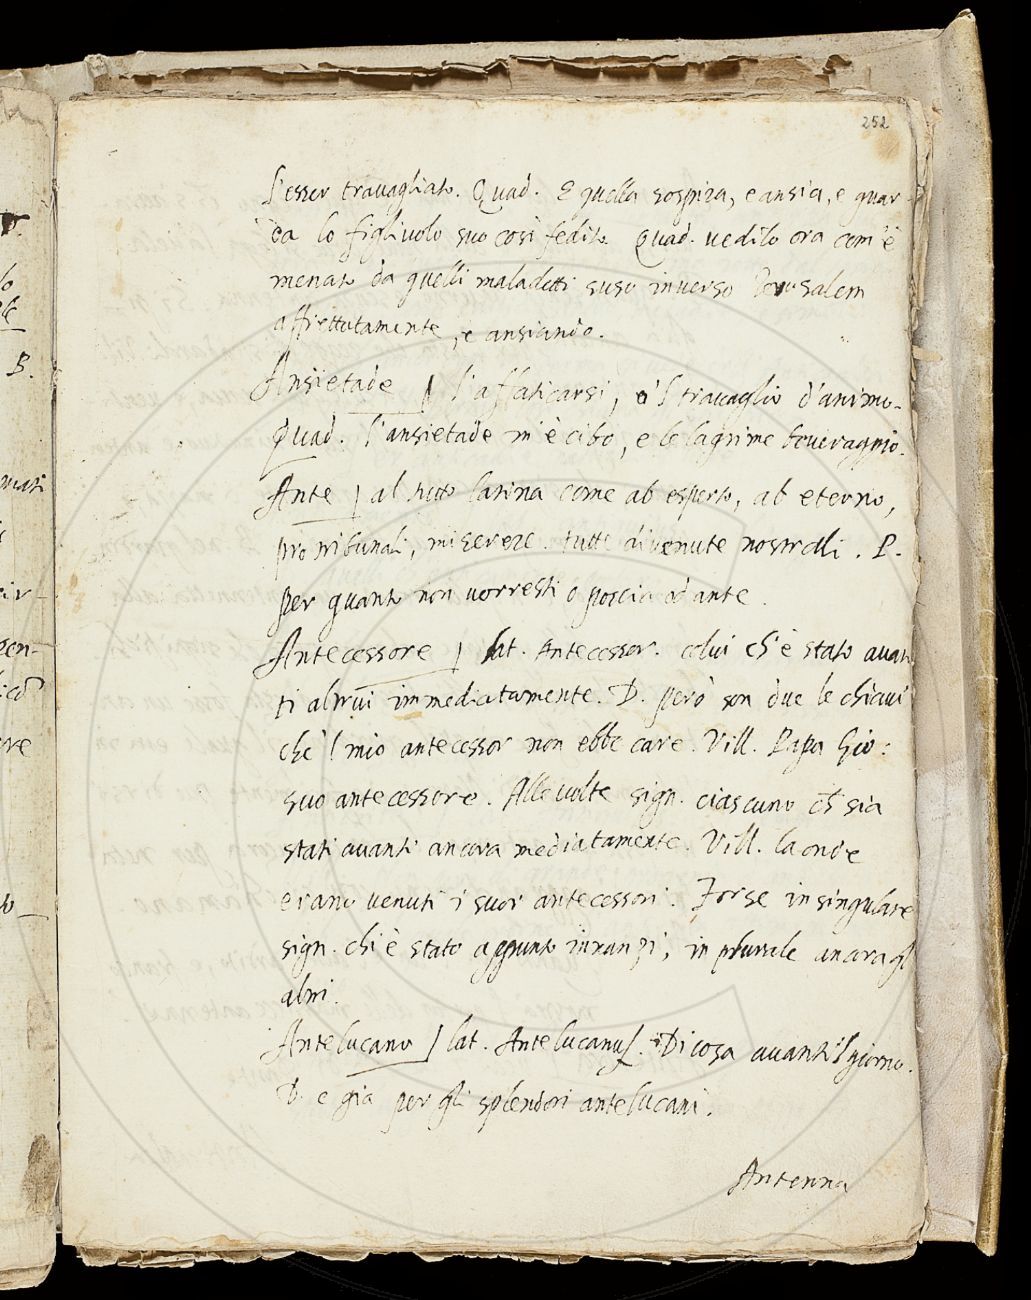 252
l'esser travagliato. Quad. E quella sospira, e ansia, e guar-
da lo figlivolo suo così fedito. Quad. vedilo ora com'è
menato da quelli maladetti suso inverso Jerusalem
affrettatamente, e ansiando.
Ansietade l'affaticarsi, o'l travaglio d'animo.
Quad. l'ansietade m'è cibo, e le lagrime beveraggio.
Ante al tutto latina come ab esperto, ab eterno,
pro tribunali, miserere. tutte divenute nostrali. P.
per quanto non vorresti o poscia od ante.
Antecessore lat. Antecessor. colui ch'è stato avan
ti altrui immediatamente. D. però son due le chiavi
che'l mio antecessor non ebbe care. Vill. Papa Gio:
suo antecessore. Alle volte sign. ciascuno ch sia
stati avanti ancora mediatamente. Vill. la onde
erano venuti i suoi antecessori. Forse in singulare
sign. chi è stato appunto innanzi, in plurale ancora gl
altri.
Antelucano lat. Antelucanus. Di cosa avanti'l giorno.
D. e gia per gli splendori antelucani.
Antenna